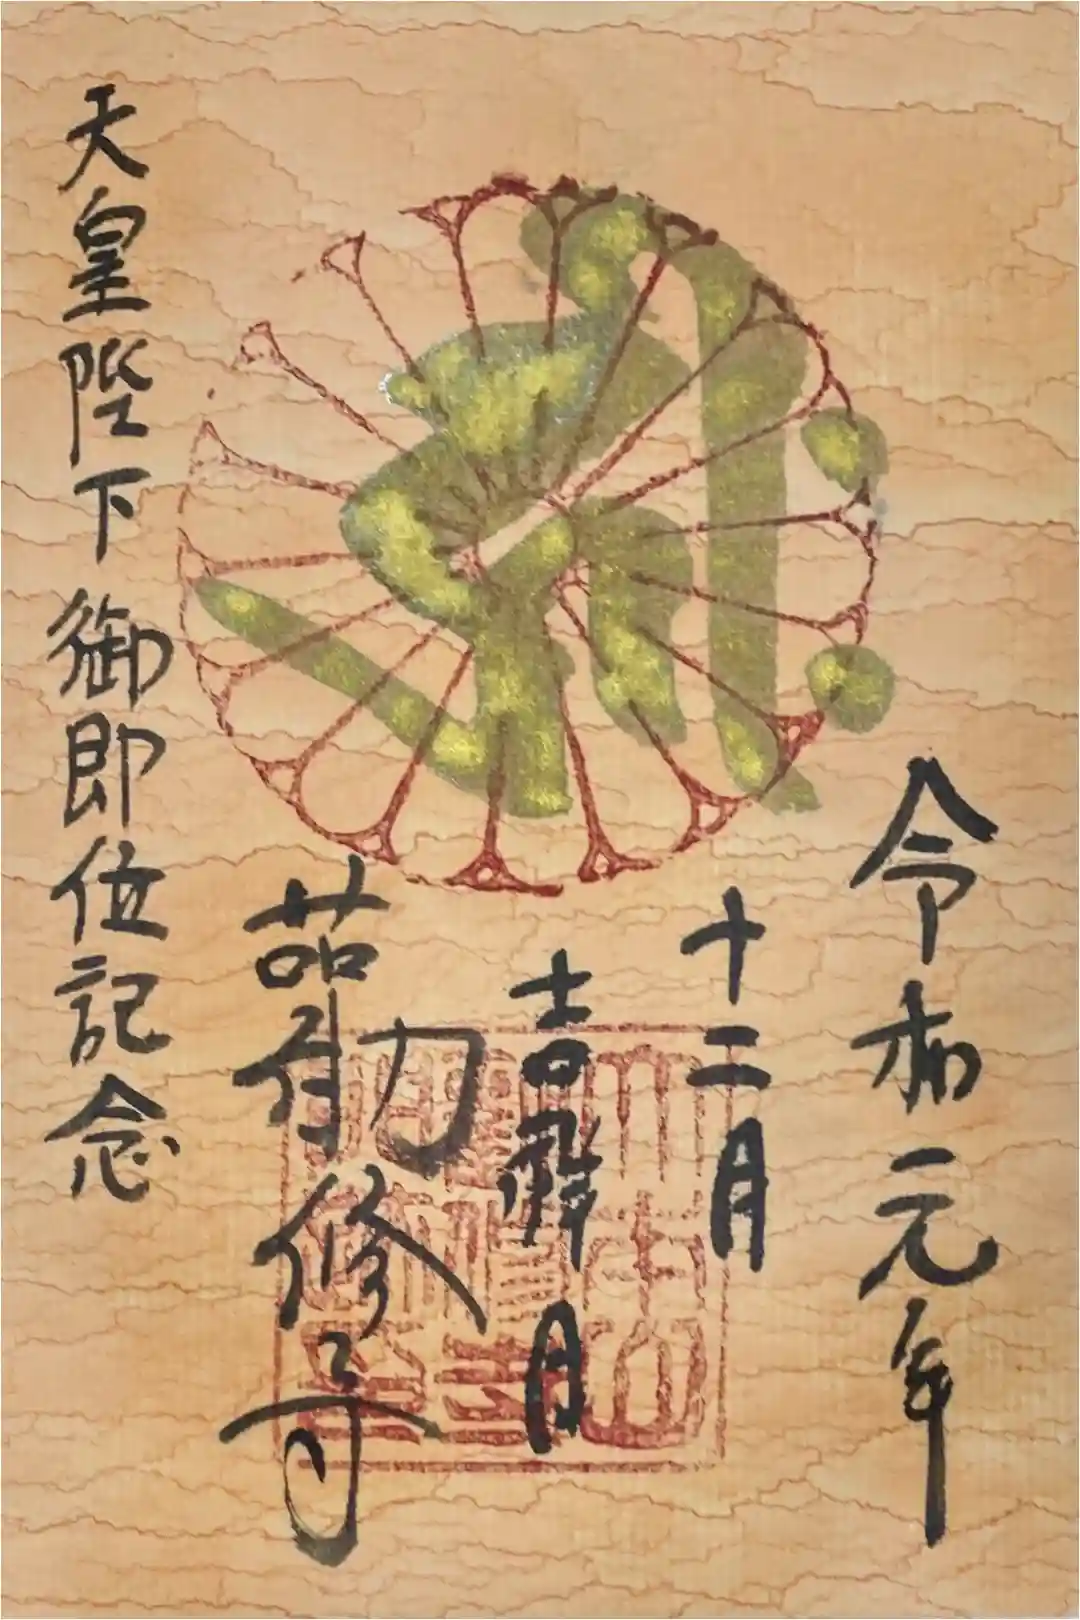 令和元年
十二月
吉祥日
勸修寺
天皇陛下御即位記念